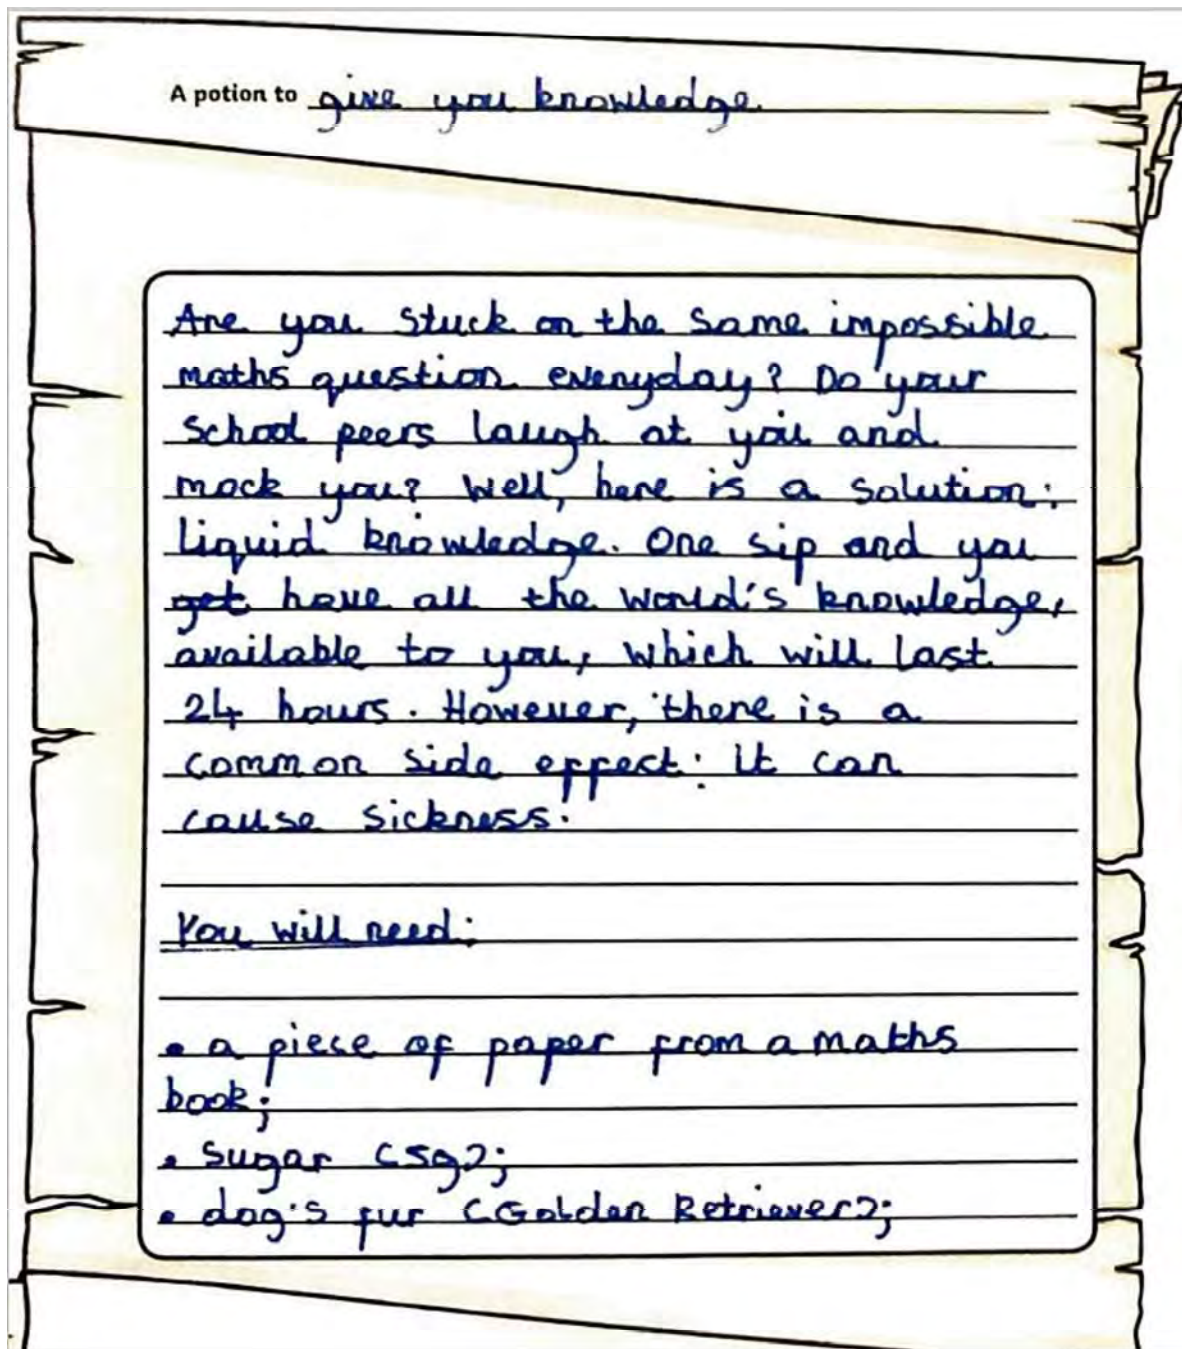 A potion to give you knowledge
Are you stuck on the same impossible
maths question everyday? Do your
school peers laugh at you and
mock you? Well, here is a solution:
liquid knowledge. One sip and you
~~get~~ have all the world's knowledge,
available to you, which will last
24 hours. However, there is a
common side effect: it can
cause sickness.
You will need:
• a piece of paper from a maths
book;
• sugar (5g);
• dog's fur (Golden Retriever);